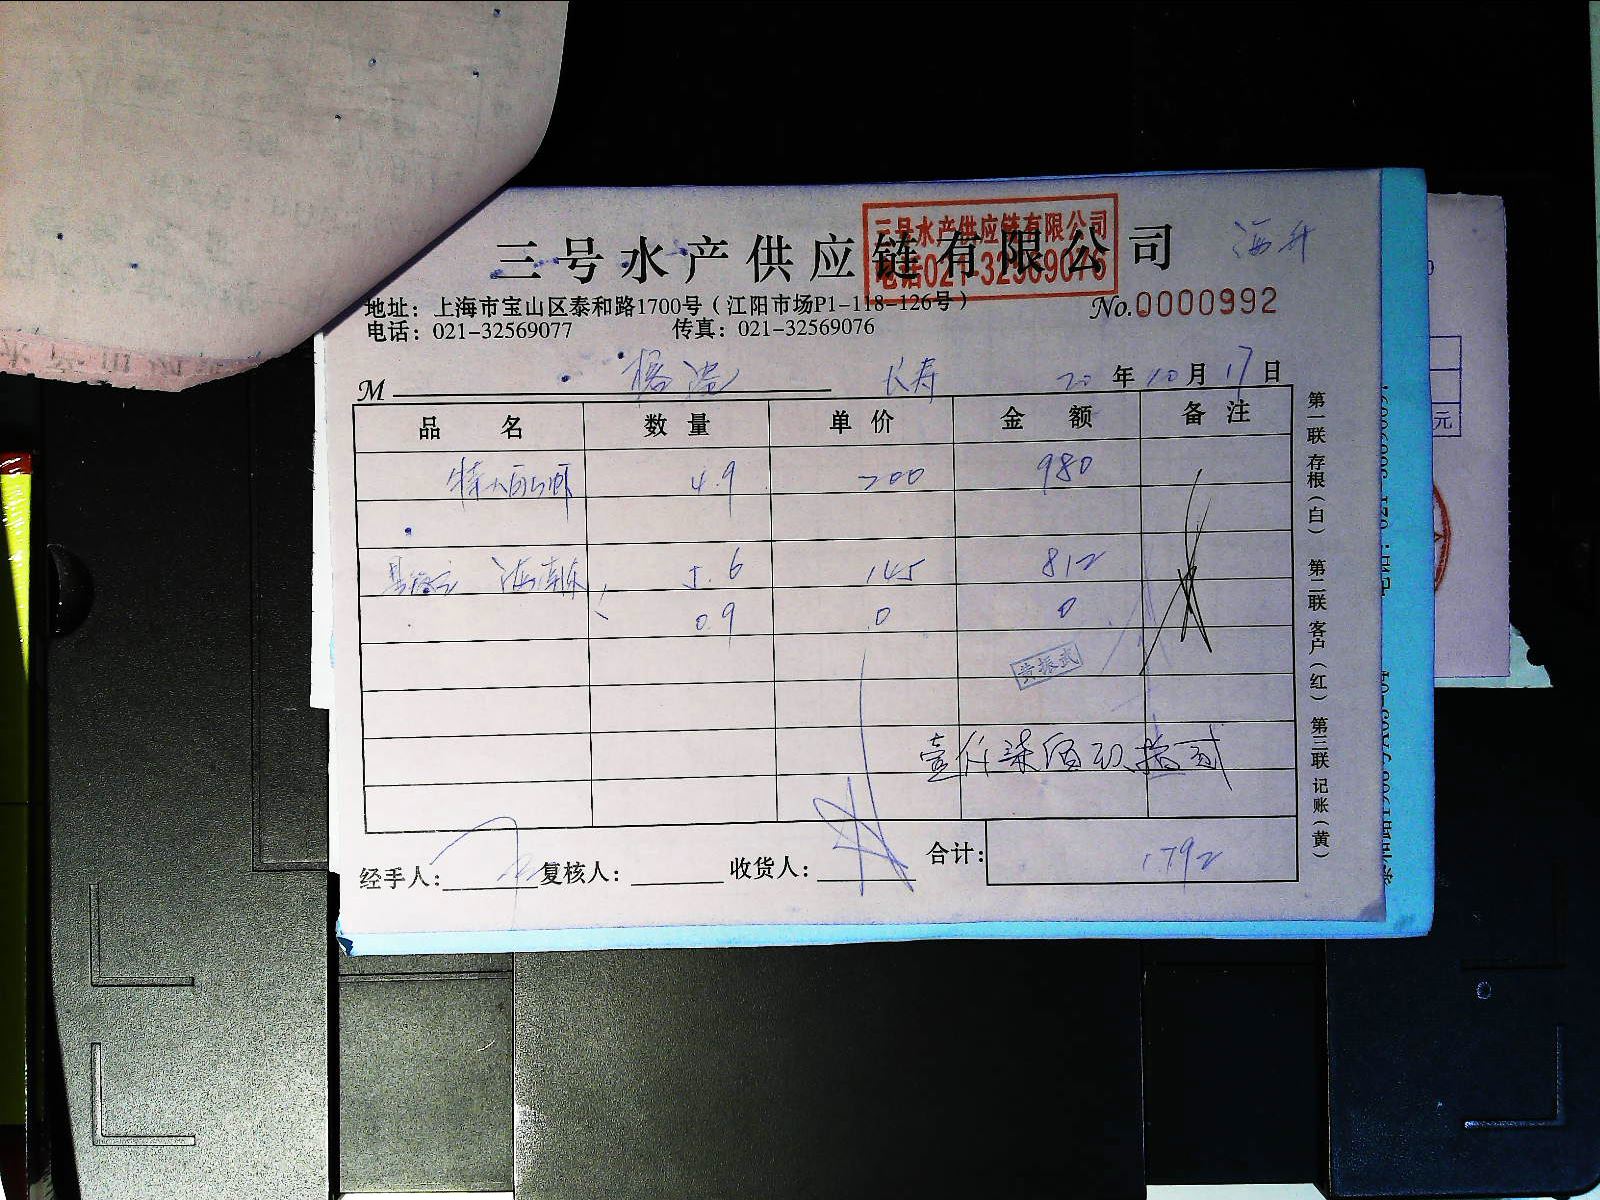 三号水产供应链有限公司
三号水产供应链有限公司
电话021-32569076
地址：上海市宝山区泰和路1700号（江阳市场P1-118-126号）
No.0000992
电话：021-32569077 传真：021-32569076
M 长寿 20年10月17日
品名 数量 单价 金额 备注
4.9 200 980
5.6 145 812
0.9 0 0
黄振武
壹仟柒佰玖拾贰
经手人： 复核人： 收货人： 合计： 1792
第一联 存根（白） 第二联 客户（红） 第三联 记账（黄）
元